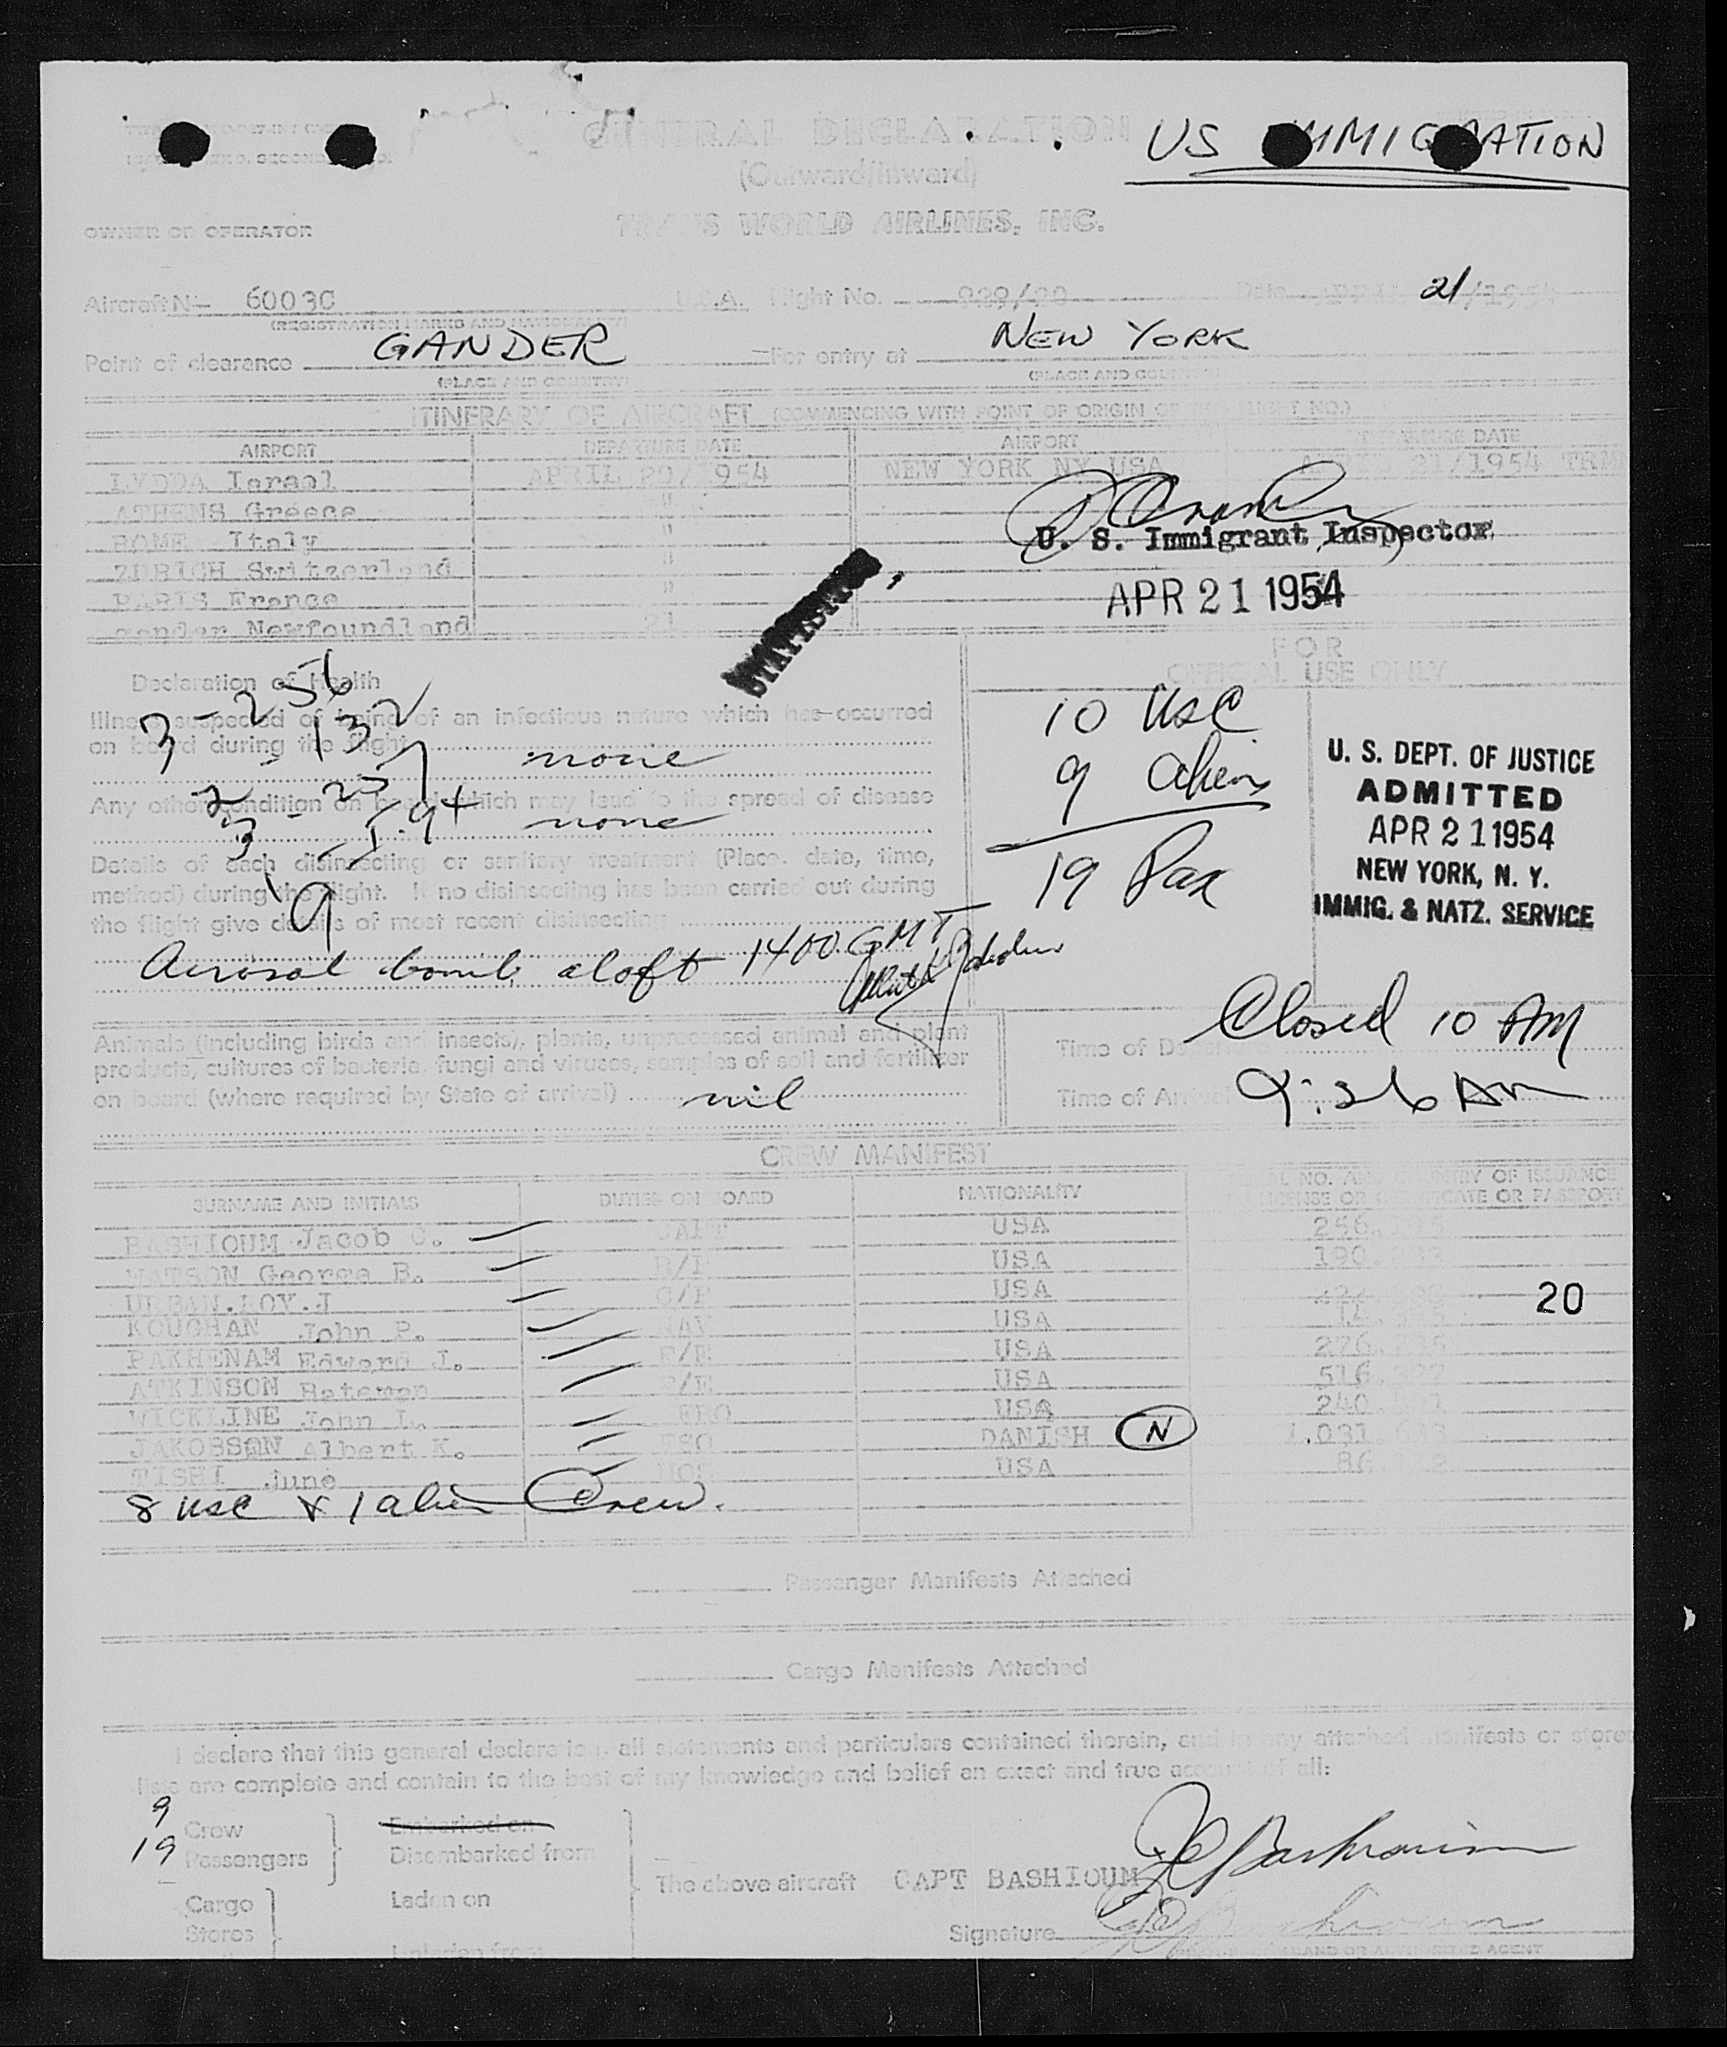 US IMMIGRATION
GENERAL DECLARATION
(Outward/Inward)
OWNER OR OPERATOR TRANS WORLD AIRLINES, INC.
Aircraft No 6003C U.S.A. Flight No. Date 21/195
(REGISTRATION MARKS AND NATIONALITY)
Point of clearance GANDER For entry at NEW YORK
(PLACE AND COUNTRY) (PLACE AND COUNTRY)
ITINERARY OF AIRCRAFT (COMMENCING WITH POINT OF ORIGIN OF FLIGHT NO.)
AIRPORT DEPARTURE DATE AIRPORT DEPARTURE DATE
LYDDA Israel APRIL 20/1954 NEW YORK NY USA APRIL 21/1954 TRM
ATHENS Greece "
ROME Italy "
ZURICH Switzerland "
PARIS France "
gander Newfoundland 21
U. S. Immigrant Inspector
APR 21 1954
FOR
OFFICIAL USE ONLY
Declaration of Health
Illness suspected of being of an infectious nature which has occurred
on board during the flight
none
Any other condition on board which may lead to the spread of disease
none
Details of each disinsecting or sanitary treatment (Place, date, time,
method) during the flight. If no disinsecting has been carried out during
the flight give details of most recent disinsecting
Aerosol bomb aloft 1400 GMT
3 - 256
- 132
2 - 237
3 - 1.94
19
10 USC
9 Aliens
19 Pax
U. S. DEPT. OF JUSTICE
ADMITTED
APR 21 1954
NEW YORK, N. Y.
IMMIG. & NATZ. SERVICE
Animals (including birds and insects), plants, unprocessed animal and plant
products, cultures of bacteria, fungi and viruses, samples of soil and fertilizer
on board (where required by State of arrival) nil
Time of Departure Closed 10 AM
Time of Arrival 9:26 AM
CREW MANIFEST
SURNAME AND INITIALS DUTIES ON BOARD NATIONALITY SERIAL NO. AND COUNTRY OF ISSUANCE
LICENSE OR CERTIFICATE OR PASSPORT
BASHIOUM Jacob C. CAPT USA 256
MATSON George B. USA 190
URBAN.LOY.J USA
KOUGHAN John P. USA
PAKHENAM Edward J. USA 276
ATKINSON Bateman USA 516
WICKLINE John L. USA 240
JAKOBSON Albert K. DANISH N 1.031
TISHI June HOS USA 86
8 USC & 1 alien Crew.
20
Passenger Manifests Attached
Cargo Manifests Attached
I declare that this general declaration, all statements and particulars contained therein, and in any attached manifests or stores
lists are complete and contain to the best of my knowledge and belief an exact and true account of all:
9 Crew Embarked on
19 Passengers Disembarked from
The above aircraft CAPT BASHIOUM JC Bashioum
Cargo Laden on
Stores
Signature JC Bashioum